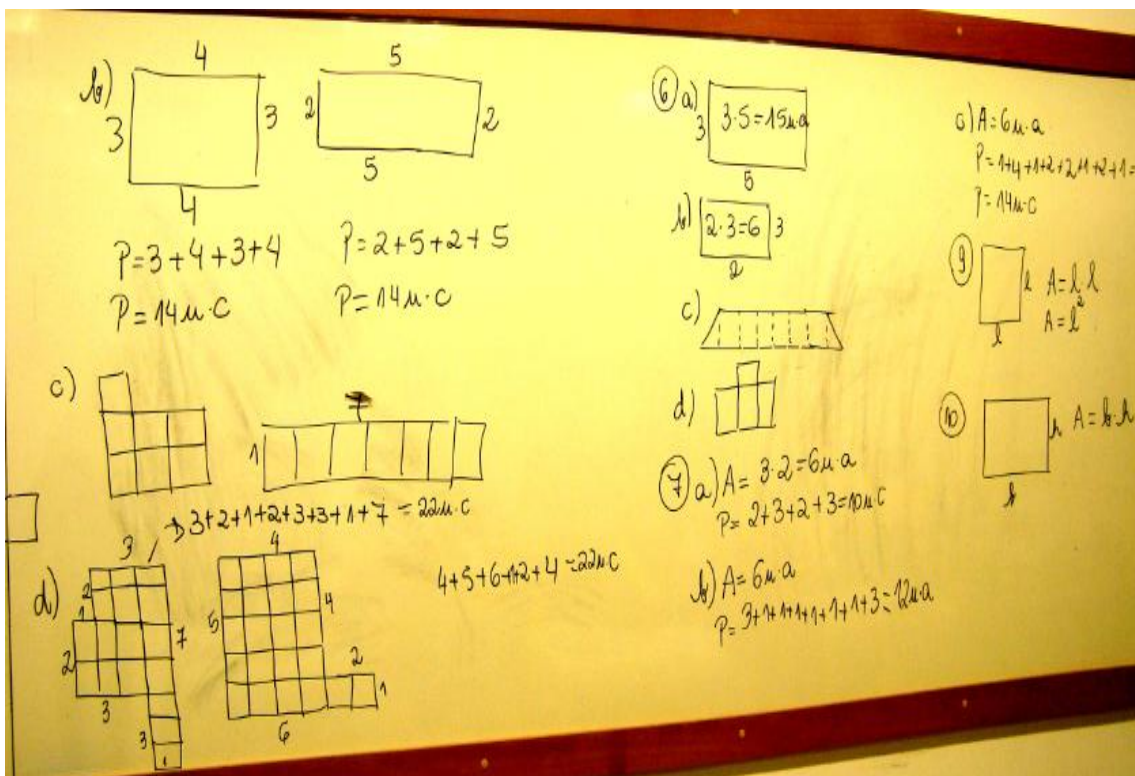 b)
4
3
3
4
P=3+4+3+4
P=14u.c
5
2
2
5
P=2+5+2+5
P=14u.c
c)
7
1
3+2+1+2+3+3+1+7=22u.c
d)
3
2
1
2
3
7
3
1
4
5
4
2
1
6
4+5+6+1+2+4=22u.c
6 a)
3
3.5=15u.a
5
b)
2.3=6
3
2
c)
d)
7 a) A=3.2=6u.a
P=2+3+2+3=10u.c
b) A=6u.a
P=3+1+1+1+1+1+1+3=12u.a
c) A=6u.a
P=1+4+1+2+2+1+2+1=
P=14u.c
9
l
l
A=l.l
A=l²
10
h
b
A=b.h